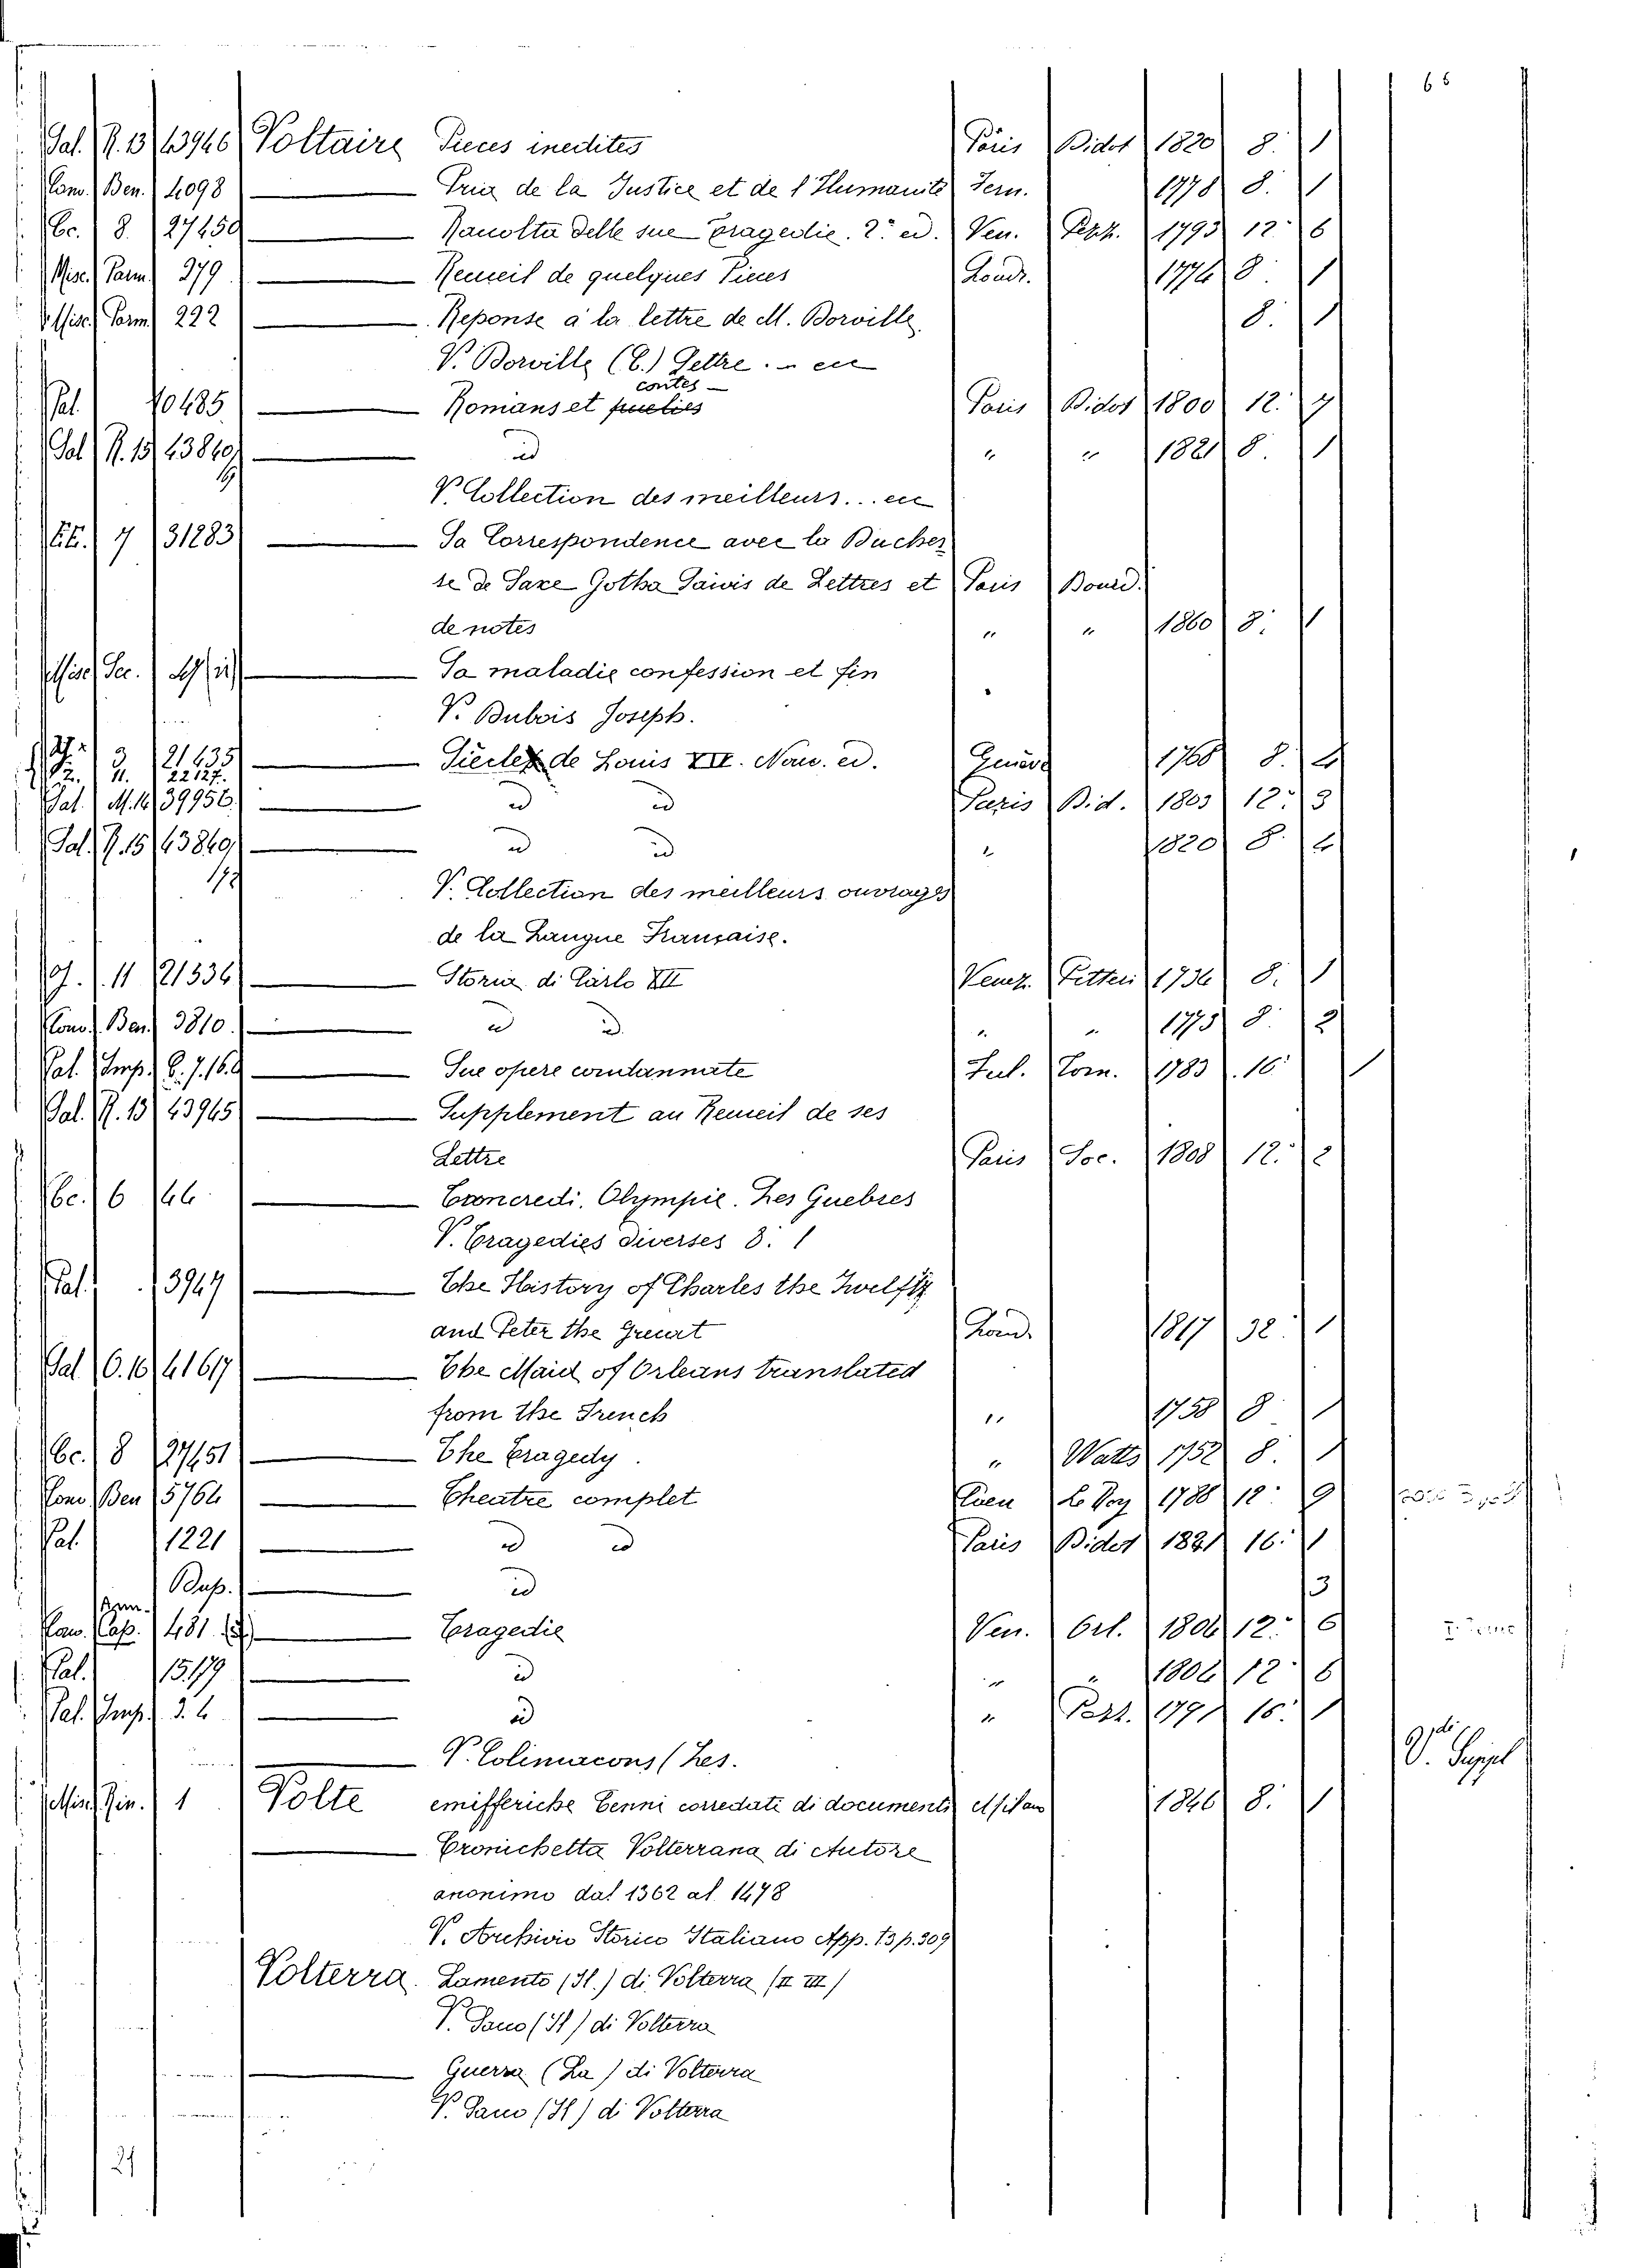 66
Pal. R. 13 43946 Voltaire Pieces inedites Paris Didot 1820 8. 1
Com. Ben. 4098 Prix de la Justice et de l'Humanité Fern. 1778 8. 1
Ec. 8 27450 Raccolta delle sue Tragedie. 2ª ed. Ven. Pezz. 1793 12 6
Misc. Parm. 279 Recueil de quelques Pieces Londr. 1774 8. 1
Misc. Parm. 222 Reponse a la lettre de M. Dorville 8. 1
V. Dorville (C.) Lettre
contes
Pal. 10485 Romans et Paris Didot 1800 12. 4
Pal. R. 15 43840 id " " 1821 8. 1
V. Collection des meilleurs...
7 31283 Sa Correspondence avec la Duches
se de Saxe Gotha Suivis de Lettres et Paris Bourd.
de notes " " 1860 8. 1
Misc. Sa maladie confession et fin
V. Dubois Joseph.
3 21435 Siecle de Louis XIV. Nouv. ed. Genève 1768 8. 4
22127.
Pal. M. 14 39956 id id Paris Did. 1803 12. 3
Pal. R. 15 43840 id id " 1820 8. 4
V. Collection des meilleurs ouvrages
de la Langue Française.
G. 11 21534 Storia di Carlo XII Venez. Pitteri 1734 8. 1
Com. Ben. 3810 id id " " 1775 8. 2
Pal. Imp. 6. 7. 16. Sue opere condannate Ful. Tom. 1783 16 1
Pal. R. 13 43945 Supplement au Recueil de ses
Lettre Paris Soc. 1808 12. 2
Ec. 6 44 Tancredi, Olympie. Les Guebres
V. Tragedies diverses 8. 1
Pal. 3947 The History of Charles the Twelfth
and Peter the Great Lond. 1817 32. 1
Pal O. 10 41617 The Maid of Orleans translated
from the French " 1758 8 1
Ec. 8 27451 The Tragedy. " Watts 1752 8. 1
Com. Ben 5764 Theatre complet Caen Le Roy 1788 18. 9
Pal. 1221 id id Paris Didot 1821 16. 1
Dup. id 3
Rom. Cap. 481 Tragedie Ven. Orl. 1804 12. 6
Pal. 1579 id " " 1804 12 6
Pal. Imp. 3. 4 id " Pezz. 1791 16. 1
V. Colimacons (Les. V. Suppl
1 Volte emisferiche Cenni corredati di documenti Milano 1846 8. 1
Cronichetta Volterrana di Autore
anonimo dal 1362 al 1478
V. Archivio Storico Italiano App. 13 p. 309
Volterra. Lamento (Il) di Volterra (II III)
V. Saco (Il) di Volterra
Guerra (La) di Volterra
V. Saco (Il) di Volterra
21